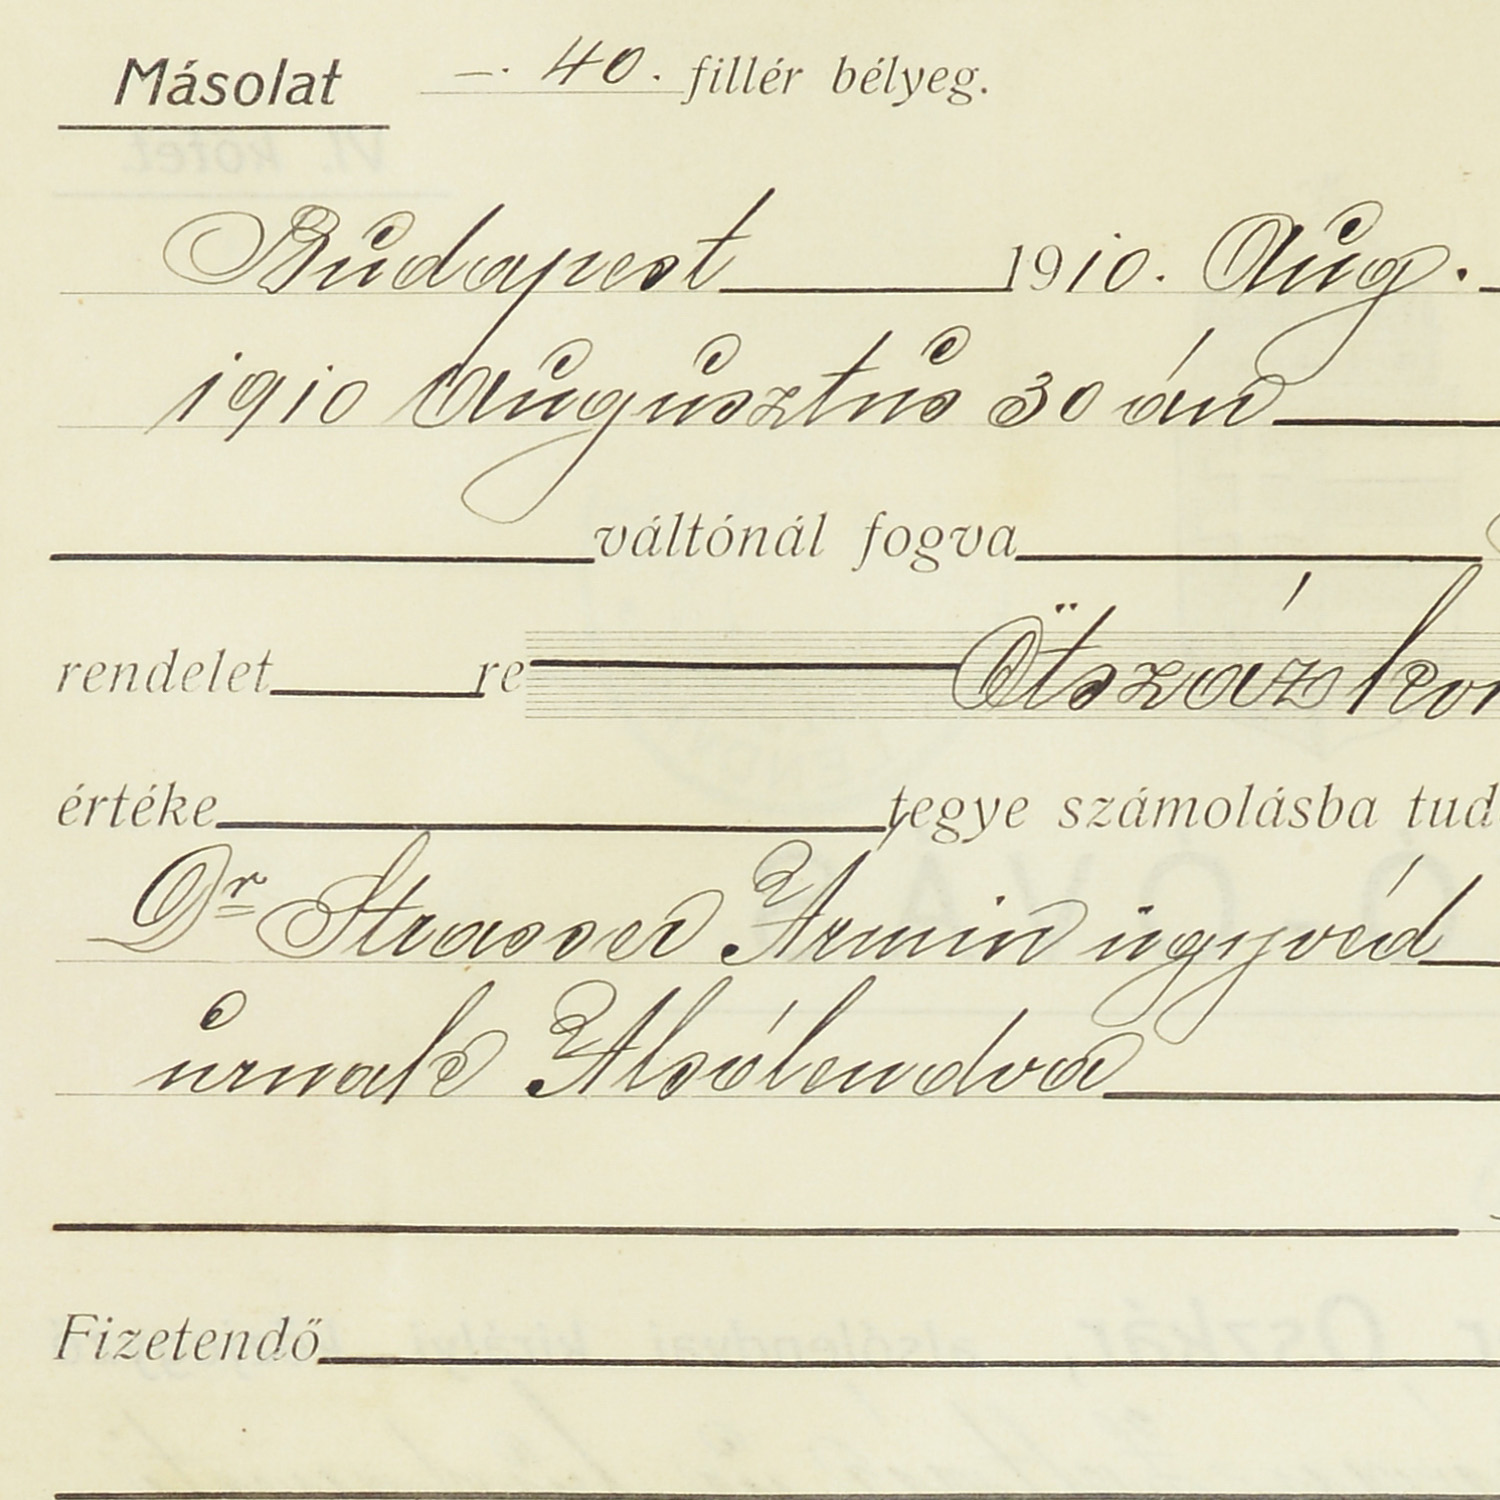 Másolat —. 40. fillér bélyeg.
Budapest 1910. Aug.
1910 Augusztus 30 án
váltónál fogva
rendelet re Ötszáz kor
értéke tegye számolásba tud
Dr Strasser Ármin ügyvéd
úrnak Alsólendva
Fizetendő